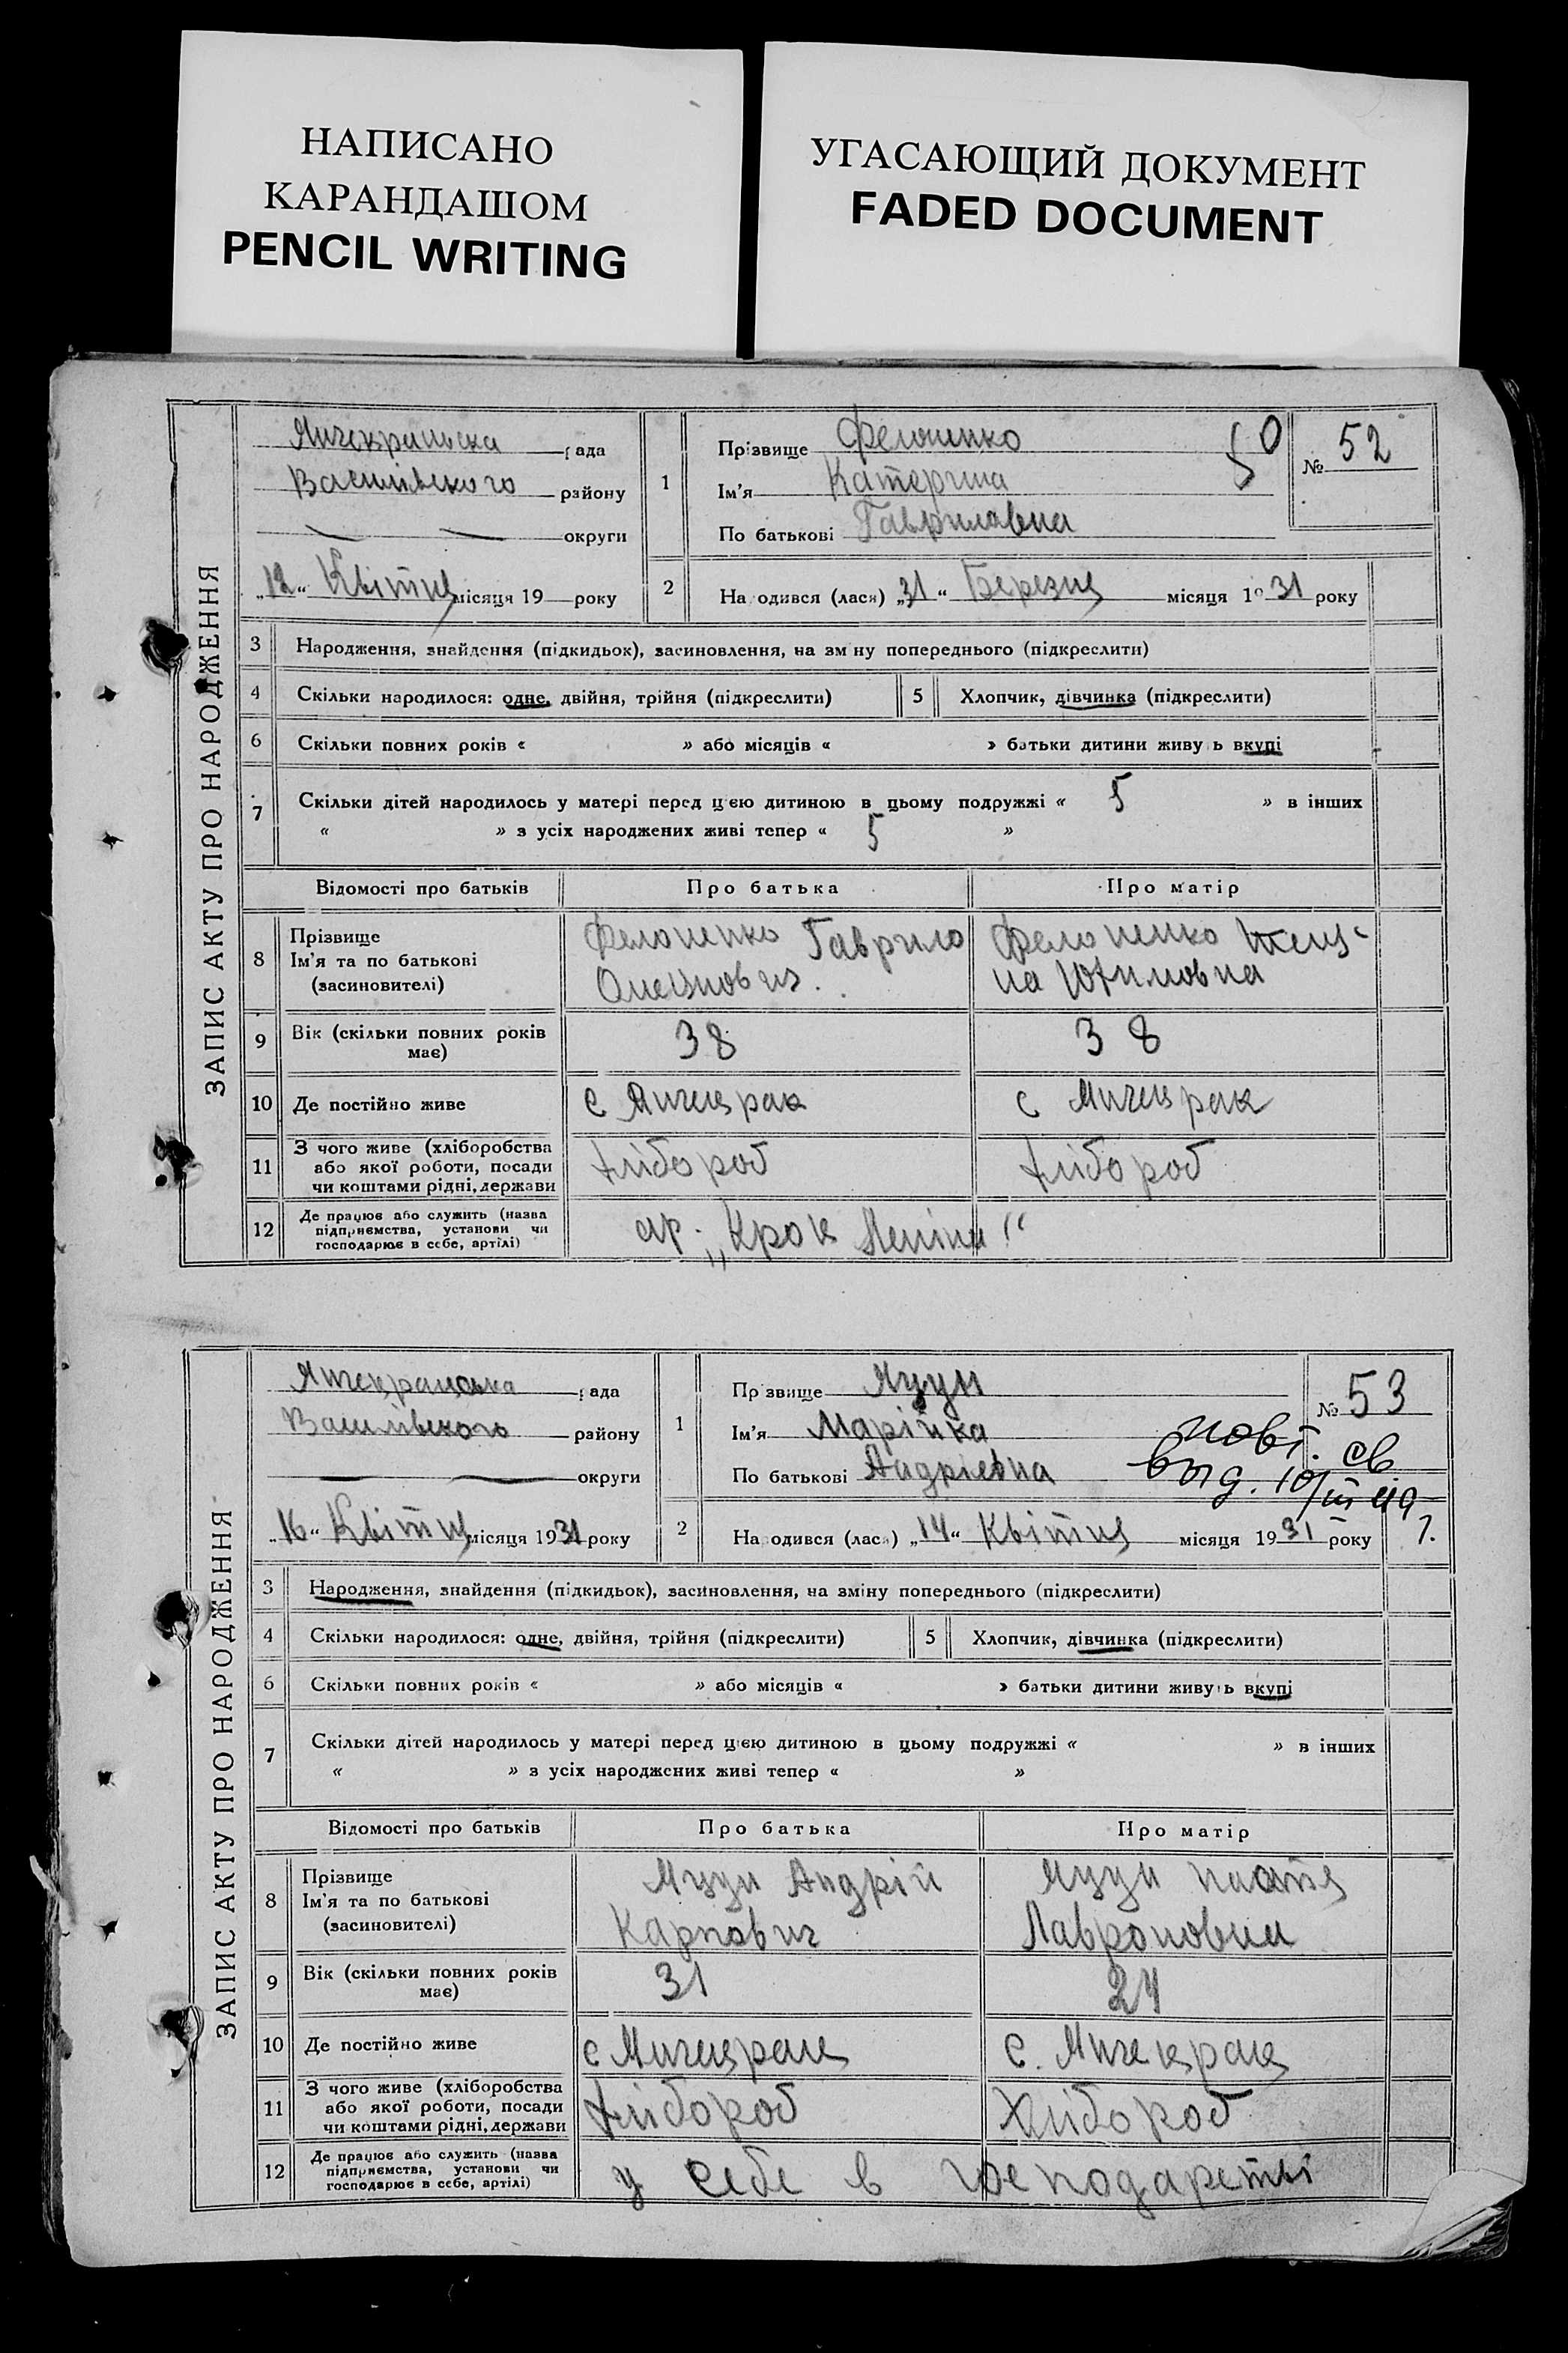 НАПИСАНО
КАРАНДАШОМ
PENCIL WRITING
УГАСАЮЩИЙ ДОКУМЕНТ
FADED DOCUMENT
ЗАПИС АКТУ ПРО НАРОДЖЕННЯ
Янчекрацька рада
Василівського району
округи
„12“ Квітня місяця 19 року
1
Прізвище Фелоненко
Ім'я Катерина
По батькові Гавриловна
50
№ 52
2
Народився (лася) „31“ Березня місяця 1931 року
3 Народження, знайдення (підкидьок), засиновлення, на зміну попереднього (підкреслити)
4 Скільки народилося: одне, двійня, трійня (підкреслити)
5 Хлопчик, дівчинка (підкреслити)
6 Скільки повних років « » або місяців « » батьки дитини живуть вкупі
7 Скільки дітей народилось у матері перед цією дитиною в цьому подружжі « 5 » в інших
« » з усіх народжених живі тепер « 5 »
Відомості про батьків Про батька Про матір
8 Прізвище
Ім'я та по батькові
(засиновителі)
Фелоненко Гаврило
Фелоненко
на Юхимовна
9 Вік (скільки повних років
має)
38
38
10 Де постійно живе
с Янчекрак
с Янчекрак
11 З чого живе (хліборобства
або якої роботи, посади
чи коштами рідні, держави
хлібороб
хлібороб
12 Де працює або служить (назва
підприємства, установи чи
господарює в себе, артілі)
ар. „Крок Леніна“
ЗАПИС АКТУ ПРО НАРОДЖЕННЯ
Янчекрацька рада
Василівського району
округи
„16“ Квітня місяця 1931 року
1
Прізвище Яцун
Ім'я Марійка
По батькові Андріевна
№ 53
повт. св.
выд. 10/III 49
г.
2
Народився (лася) „14“ Квітня місяця 1931 року
3 Народження, знайдення (підкидьок), засиновлення, на зміну попереднього (підкреслити)
4 Скільки народилося: одне, двійня, трійня (підкреслити)
5 Хлопчик, дівчинка (підкреслити)
6 Скільки повних років « » або місяців « » батьки дитини живуть вкупі
7 Скільки дітей народилось у матері перед цією дитиною в цьому подружжі « » в інших
« » з усіх народжених живі тепер « »
Відомості про батьків Про батька Про матір
8 Прізвище
Ім'я та по батькові
(засиновителі)
Яцун Андрій
Карпович
Яцун Настя
Лавроновна
9 Вік (скільки повних років
має)
31
24
10 Де постійно живе
с Янчекрак
с. Янчекрак
11 З чого живе (хліборобства
або якої роботи, посади
чи коштами рідні, держави
хлібороб
Хлібороб
12 Де працює або служить (назва
підприємства, установи чи
господарює в себе, артілі)
у себе в господарстві